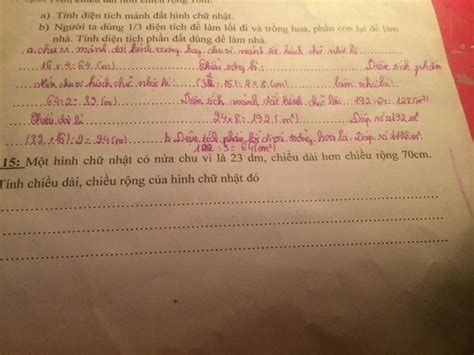 chiều dài hơn chiều rộng
a) Tính diện tích mảnh đất hình chữ nhật.
b) Người ta dùng 1/3 diện tích để làm lối đi và trồng hoa, phần còn lại để làm
nhà. Tính diện tích phần đất dùng để làm nhà.
a. chu vi mảnh đất hình vuông hay chu vi mảnh đất hình chữ nhật là
16 x 4 = 64 (m) Chiều rộng là: Diện tích phần
Nửa chu vi hình chữ nhật là : 2 = 8 (m) làm nhà là:
64 : 2 = 32 (m) Diện tích mảnh đất hình chữ là:
Chiều dài là 24 x 8 = 192 (m²) Đáp số a 192 m²
(32 + 16) : 2 = 24 (m) b. Diện tích phần lối đi và trồng hoa là:
: 3 = 64 (m²)
15: Một hình chữ nhật có nửa chu vi là 23 dm, chiều dài hơn chiều rộng 70cm.
Tính chiều dài, chiều rộng của hình chữ nhật đó